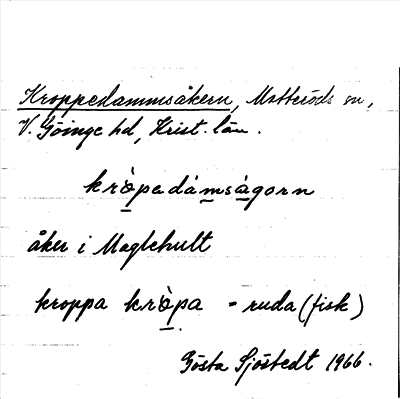 Kroppedammsåkern, Matteröds sn,
V. Göinge hd, Krist. län.
krȯ̀pedàmsȧ̀gorn
åker i Maglehult
kroppa krȯ̀pa - ruda (fisk)
Gösta Sjöstedt 1966.